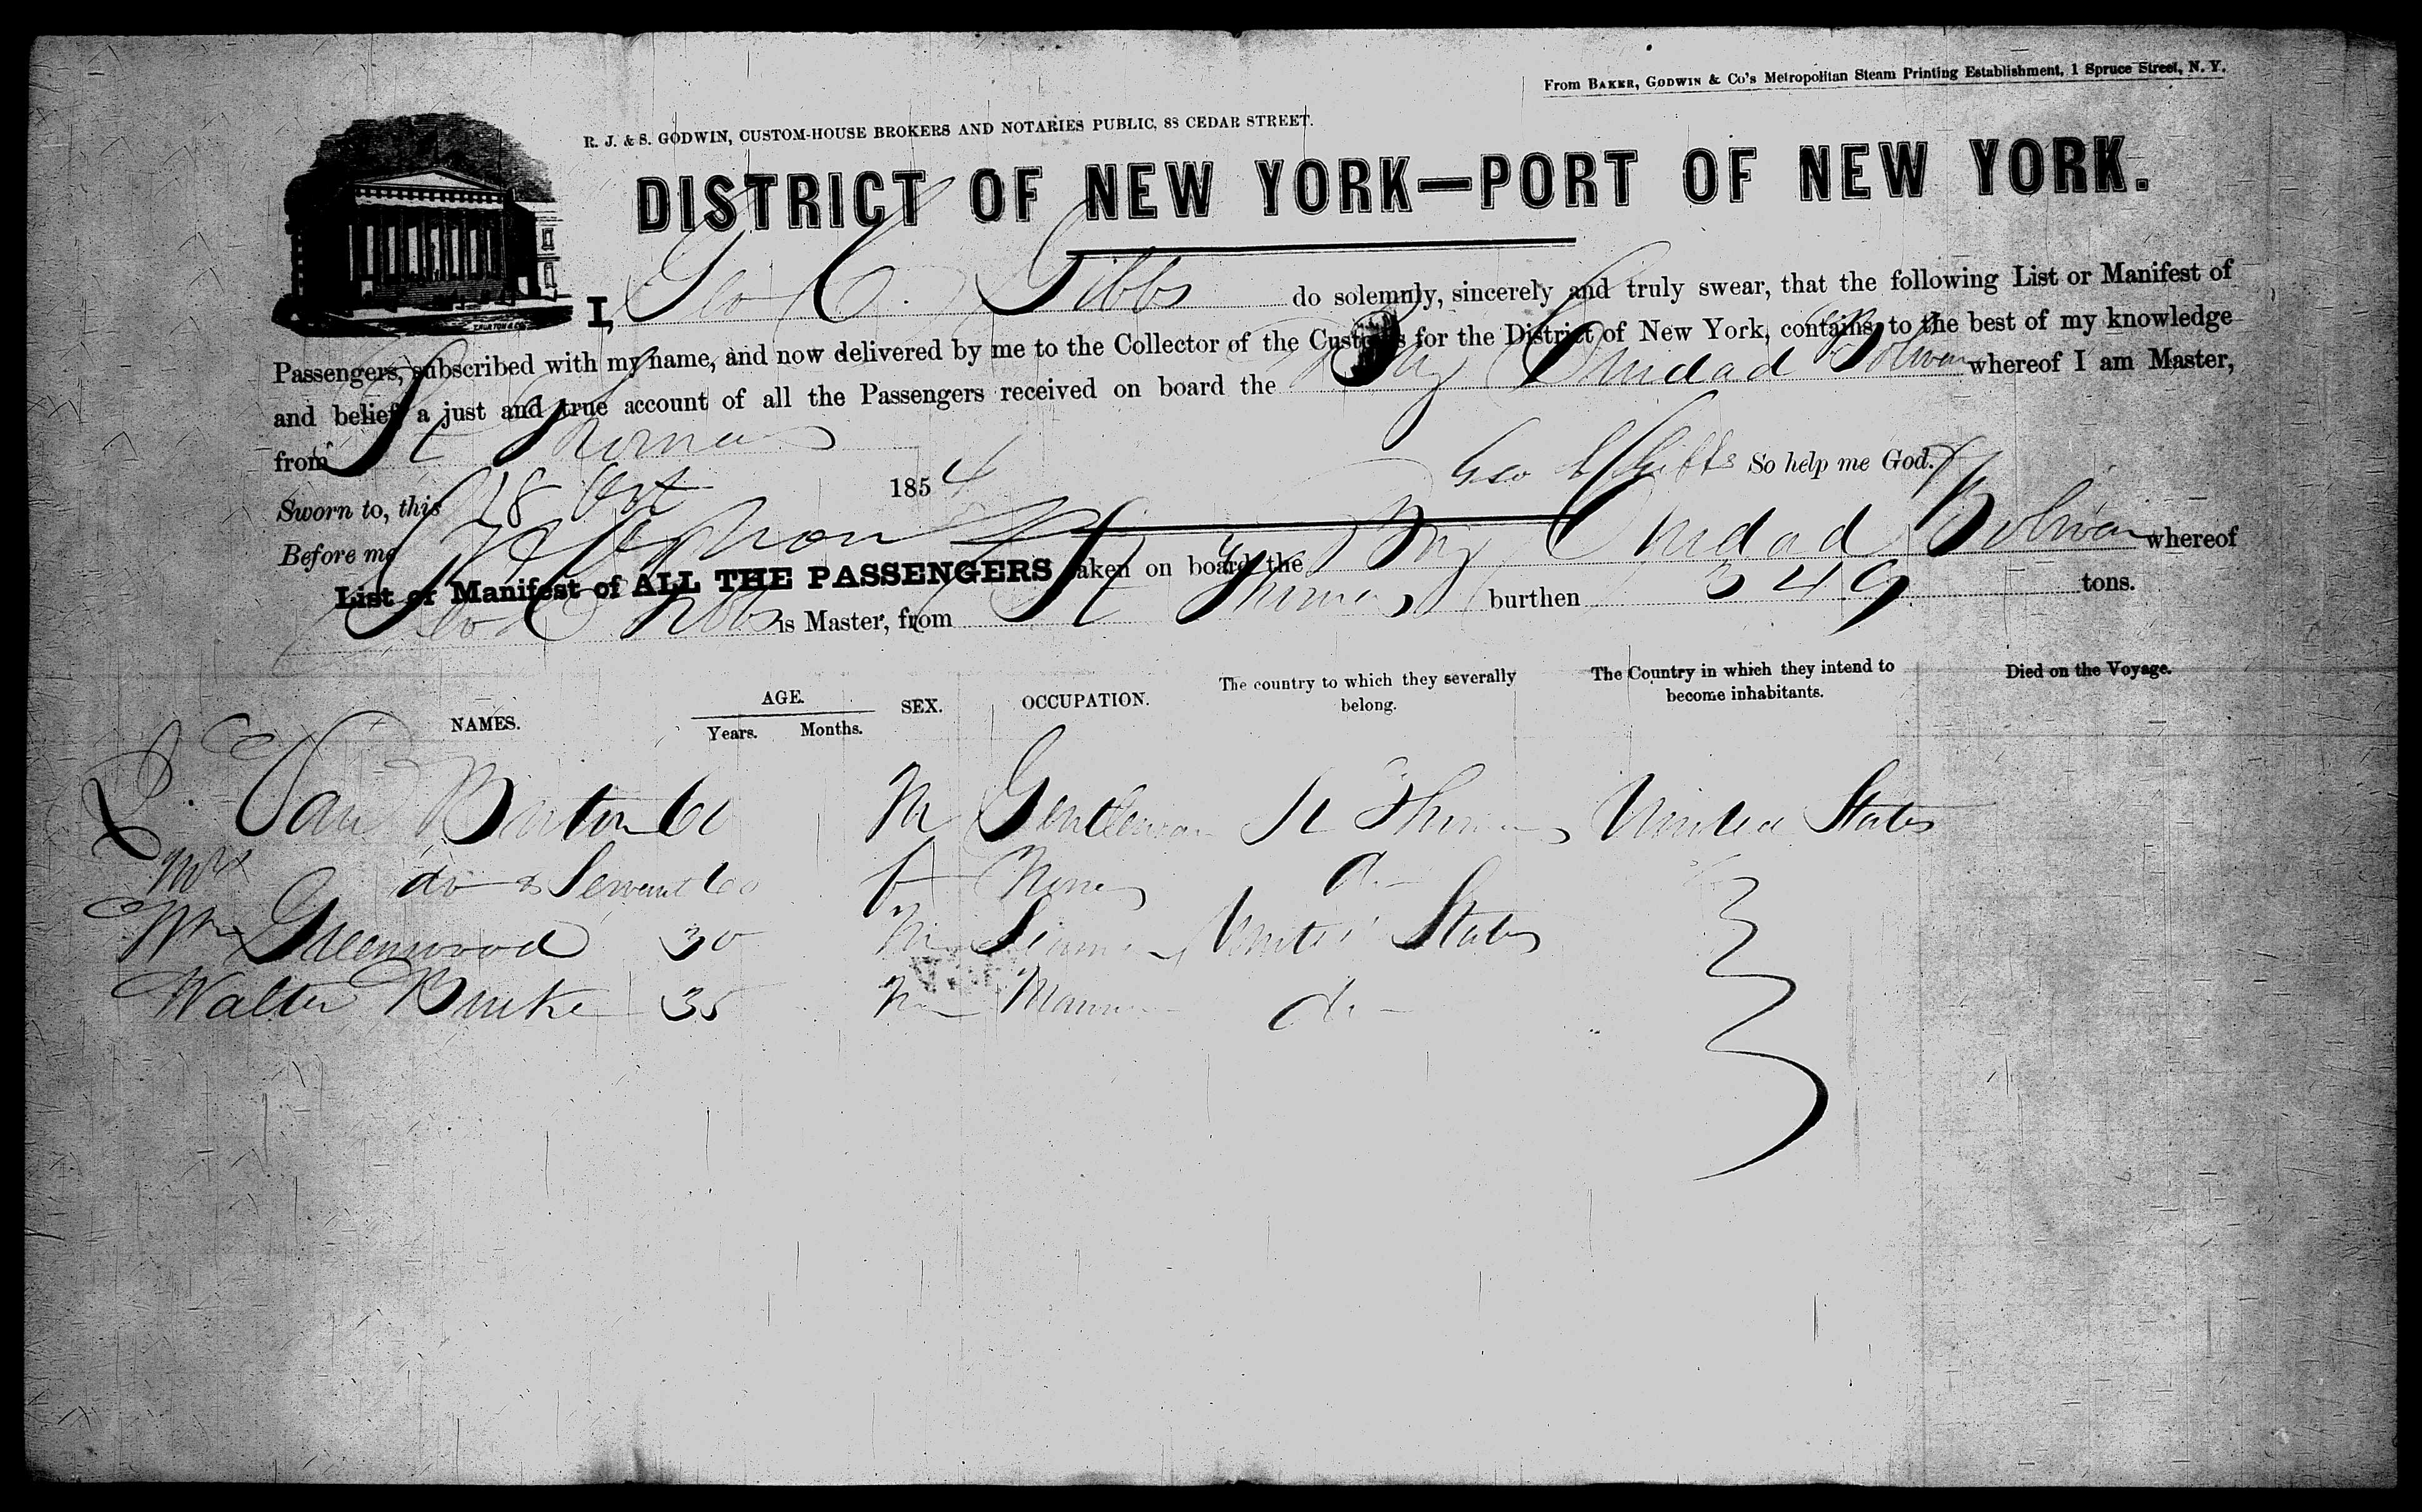 From BAKER, GODWIN & Co's Metropolitan Steam Printing Establishment, 1 Spruce Street, N. Y.
R. J. & S. GODWIN, CUSTOM-HOUSE BROKERS AND NOTARIES PUBLIC, 88 CEDAR STREET.
DISTRICT OF NEW YORK—PORT OF NEW YORK.
I, Geo C. Gibbs do solemnly, sincerely and truly swear, that the following List or Manifest of
Passengers, subscribed with my name, and now delivered by me to the Collector of the Customs for the District of New York, contains, to the best of my knowledge
and belief, a just and true account of all the Passengers received on board the Brig Ciudad Bolivar whereof I am Master,
from St Thomas
Geo C Gibbs So help me God.
Sworn to, this 18 Oct 1854
Before me
List or Manifest of ALL THE PASSENGERS taken on board the Brig Ciudad Bolivar whereof
Geo C Gibbs is Master, from St Thomas burthen 349 tons.
NAMES. AGE. Years. Months. SEX. OCCUPATION. The country to which they severally belong. The Country in which they intend to become inhabitants. Died on the Voyage.
L. Van 60 M Gentleman St Thomas United States
Mrs do & Servant 60 f None do
Wm Greenwood 30 M Seaman United States
Walter Burke 35 M Mariner do